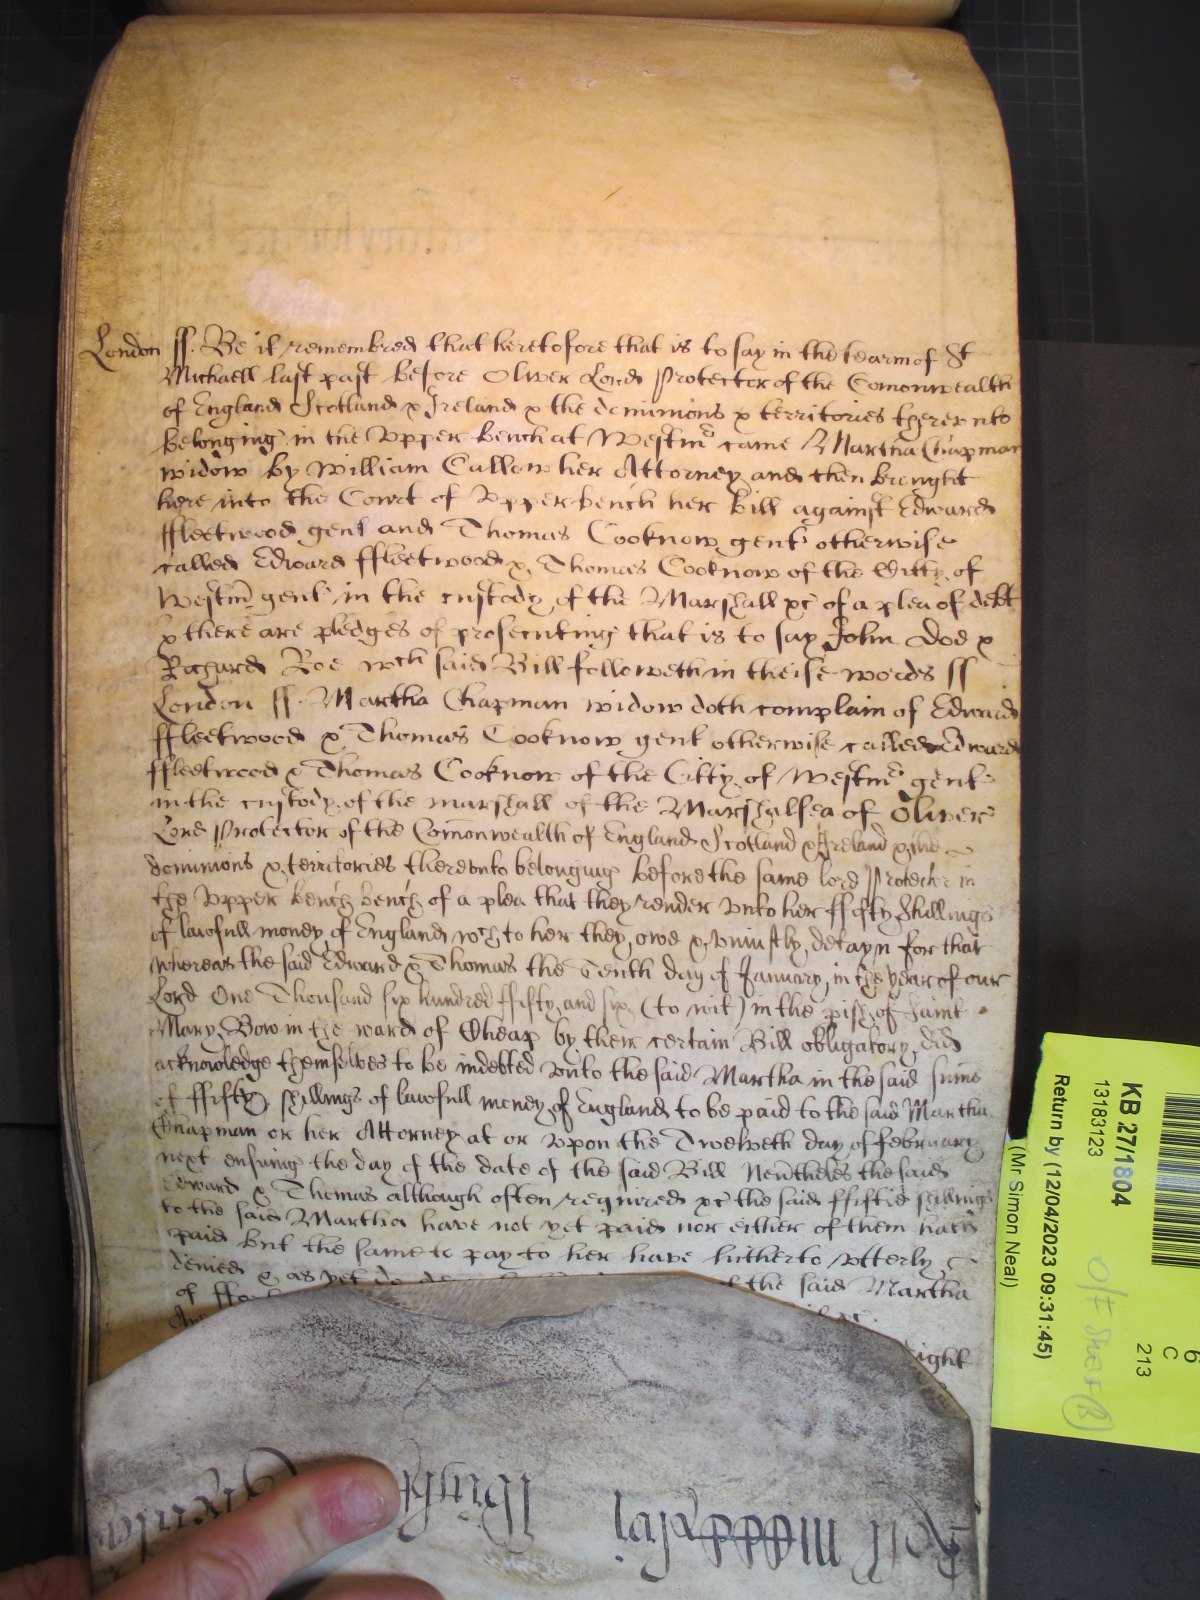 London ss. Be it remembred that heretofore that is to say in the tearm of St
Michaell last past before Oliver Lord Protector of the Comonwealth
of England Scotland & Ireland & the dominions & territories thereunto
belonging in the Upper bench at Westmr came Martha Chapman
widow by William Callow her Attorney and then brought
here into the Court of Upper bench her Bill against Edward
ffleetwood gent and Thomas Cooknow gent otherwise
called Edward ffleetwood & Thomas Cooknow of the Citty of
Westmr gent in the custody of the Marshall &c of a plea of debt
& there are pledges of prosecuting that is to say John Doe &
Richard Roe wch said Bill followeth in theise words ss
London ss. Martha Chapman widow doth complain of Edward
ffleetwood & Thomas Cooknow gent otherwise called Edward
ffleetwood & Thomas Cooknow of the Citty of Westmr gent
in the custody of the marshall of the Marshalsea of Oliver
Lord Protector of the Comonwealth of England Scotland & Ireland & the
dominions & territories thereunto belonging before the same lord Protector in
the Upper bench bench of a plea that they render unto her ffifty Shillings
of lawfull money of England wch to her they owe & uniustly detayn for that
whereas the said Edward & Thomas the Tenth day of January in the year of our
Lord One Thousand six hundred ffifty and six (to wit) in the pish of Saint
Mary Bow in the ward of Cheap by their certain Bill obligatory did
acknowledge themselves to be indebted unto the said Martha in the said sume
of ffifty shillings of lawfull money of England to be paid to the said Martha
Chapman or her Attorney at or upon the Twelveth day of February
next ensuing the day of the date of the said Bill Nevtheles the said
Edward & Thomas although often required &c the said ffiftie shillings
to the said Martha have not yet paid nor either of them hath
paid but the same to pay to her have hitherto utterly
denied & as yet do the said Martha
of
ight
Roll
KB 27/1804
13183123
Return by (12/04/2023 09:31:45)
(Mr Simon Neal)
6
C
213